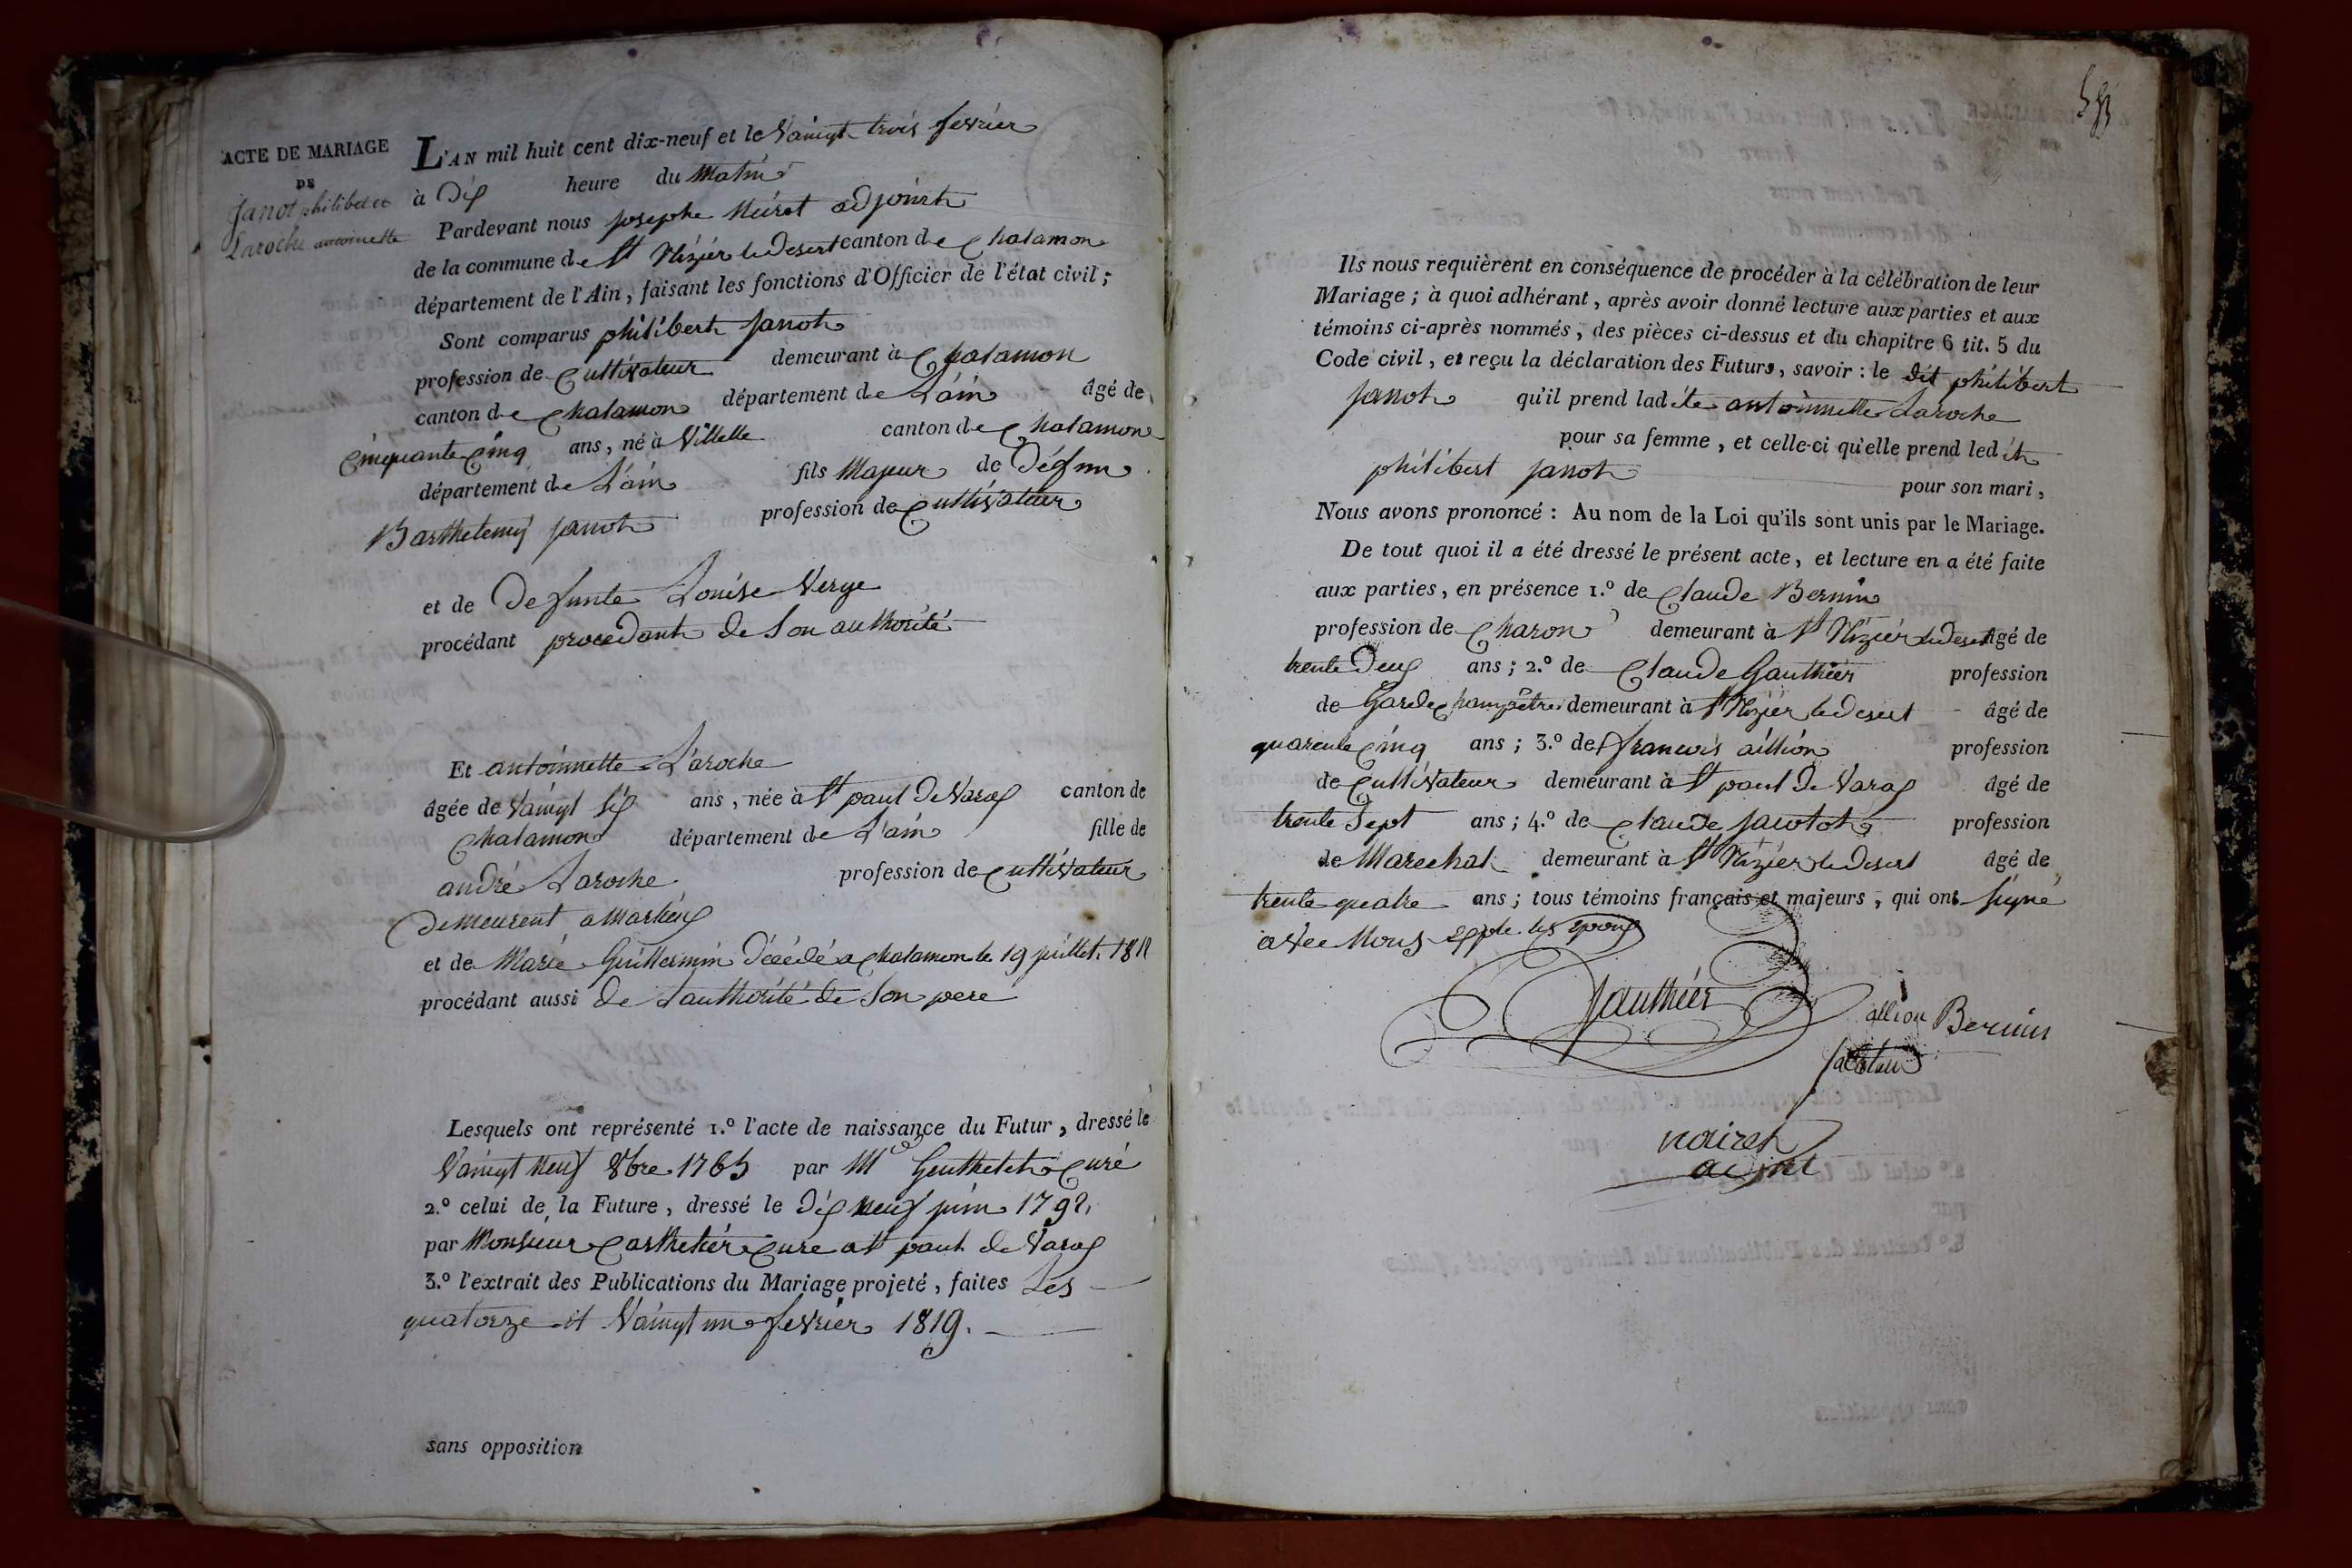 ACTE DE MARIAGE
DE
Janot philibert et
Laroche antoinette
L'AN mil huit cent dix-neuf et le Vaingt trois fevrier
à Dix heure du Matin
Pardevant nous josephe Neiret adjoint
de la commune de St Nizier le desert canton de Chalamon
département de l'Ain, faisant les fonctions d'Officier de l'état civil;
Sont comparus philibert janot
profession de Cultivateur demeurant à Chalamon
canton de Chalamon département de L'ain âgé de
Cinquante Cinq ans, né à Villette canton de Chalamon
département de L'ain fils Majeur de Défun
Barthelemy janot profession de Cultivateur
et de Defunte Louise Verge
procédant procedant de Son authorité
Et antoinnette Laroche
âgée de Vaingt Six ans, née à St paul De Varax canton de
Chalamon département de L'ain fille de
andré Laroche profession de Cultivateur
Demeurent a Marlieux
et de Marie Guillermin Décédé a Chalamon le 19 juillet 1811
procédant aussi de Lauthorité de Son pere
Lesquels ont représenté 1.º l'acte de naissance du Futur, dressé le
Vaingt Neuf 8bre 1763 par Mr Genthelet Curé
2.º celui de la Future, dressé le Dix Neuf juin 1792
par Monsieur Carthelier Cure a St paul de Varax
3.º l'extrait des Publications du Mariage projeté, faites Les
quatorze et Vaingt un fevrier 1819.
sans opposition
Ils nous requièrent en conséquence de procéder à la célébration de leur
Mariage; à quoi adhérant, après avoir donné lecture aux parties et aux
témoins ci-après nommés, des pièces ci-dessus et du chapitre 6 tit. 5 du
Code civil, et reçu la déclaration des Futurs, savoir: le dit philibert
janot qu'il prend ladite antoinnette Laroche
pour sa femme, et celle-ci qu'elle prend ledit
philibert janot pour son mari,
Nous avons prononcé: Au nom de la Loi qu'ils sont unis par le Mariage.
De tout quoi il a été dressé le présent acte, et lecture en a été faite
aux parties, en présence 1.º de Claude Bernin
profession de Charon demeurant à St Nizier le desert âgé de
trente Deux ans; 2.º de Claude Gauthier profession
de Garde Champêtre demeurant à St Nizier le desert âgé de
quarente Cinq ans; 3.º de francois aillion profession
de Cultivateur demeurant à St paul De Varax âgé de
trente Sept ans; 4.º de Claude jacotot profession
de Marechal demeurant à St Nizier le Desert âgé de
trente quatre ans; tous témoins français et majeurs, qui ont Signé
avec Nous les epoux
Gauthier
allion Bernin
nairet
adjoint